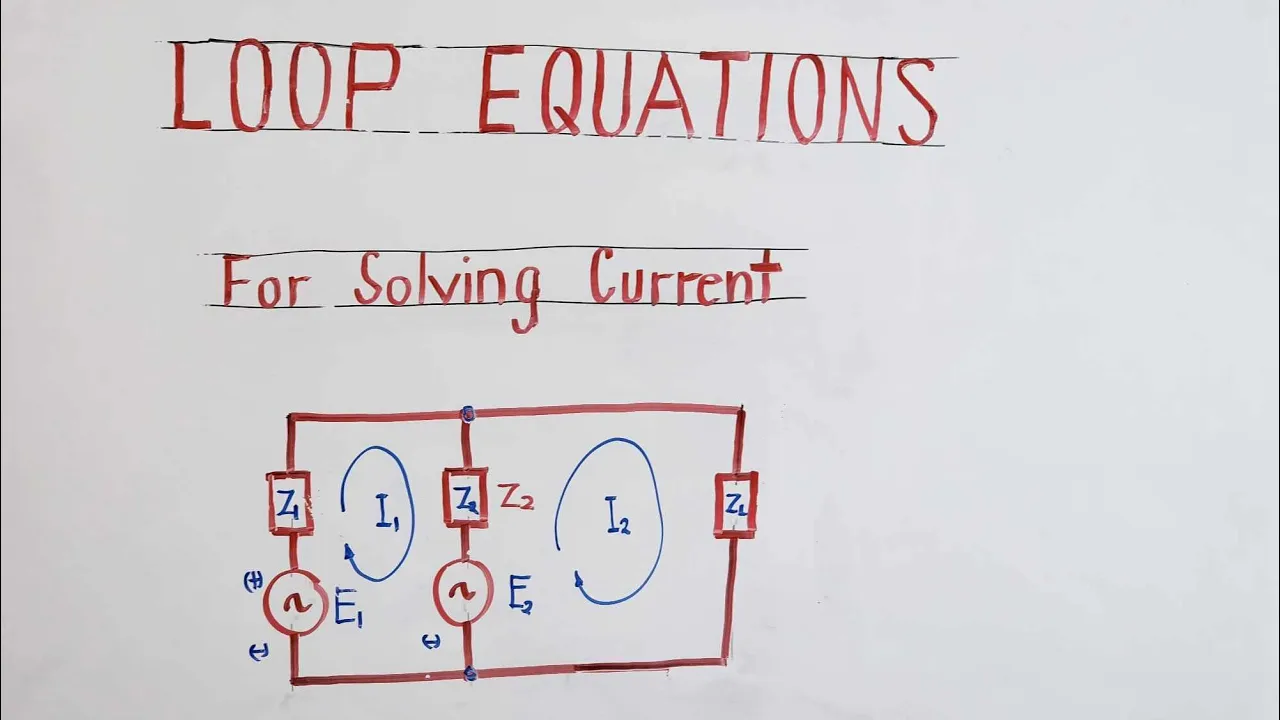 LOOP EQUATIONS
For Solving Current
Z1 I1 Z2 Z2 I2 ZL
(+)
E1 E2
(-) (-)